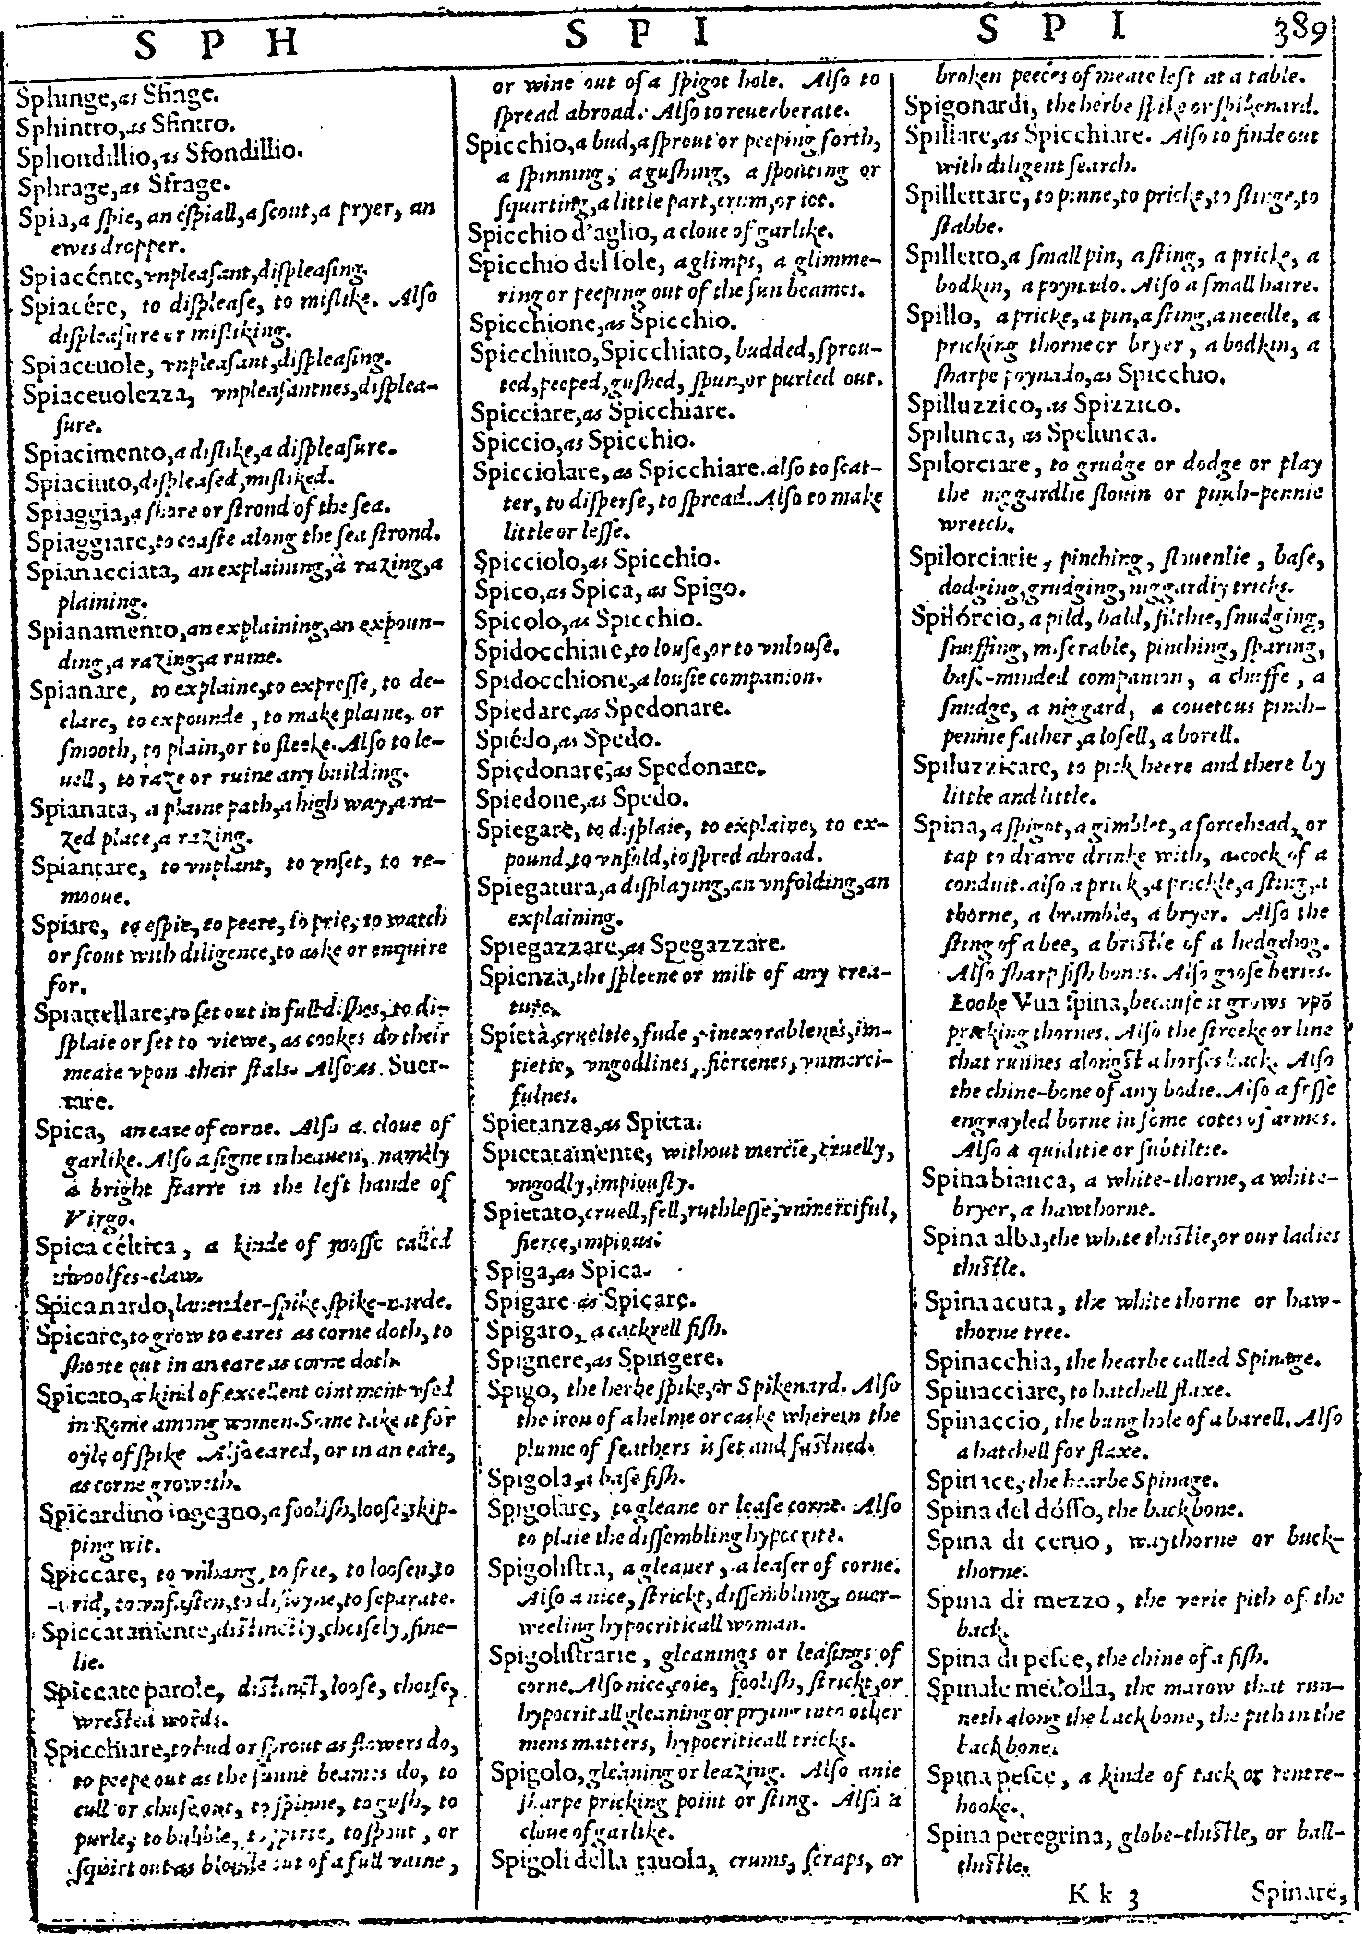 S P H
S P I
S P I
389
Sphinge, as Sfinge.
Sphintro, as Sfintro.
Sphondillio, as Sfondillio.
Sphrage, as Sfrage.
Spia, a spie, an espiall, a scout, a pryer, an
ewes dropper.
Spiacénte, vnpleasant, displeasing.
Spiacére, to displease, to mislike. Also
displeasure or misliking.
Spiaceuole, vnpleasant, displeasing.
Spiaceuolezza, vnpleasantnes, displea-
sure.
Spiacimento, a dislike, a displeasure.
Spiaciuto, displeased, misliked.
Spiaggia, a shore or strond of the sea.
Spiaggiare, to coaste along the sea strond.
Spianacciata, an explaining, a razing, a
plaining.
Spianamento, an explaining, an expoun-
ding, a razing, a ruine.
Spianare, to explaine, to expresse, to de-
clare, to expounde, to make plaine, or
smooth, to plain, or to sleeke. Also to le-
uell, to raze or ruine any building.
Spianata, a plaine path, a high way, a ra-
zed place, a razing.
Spiantare, to vnplant, to vnset, to re-
mooue.
Spiare, to espie, to peere, to prie, to watch
or scout with diligence, to aske or enquire
for.
Spiattellare, to set out in full dishes, to di-
splaie or set to viewe, as cookes do their
meate vpon their stals. Also as Suer-
tare.
Spica, an eare of corne. Also a cloue of
garlike. Also a signe in heauen, namely
a bright starre in the left hande of
Virgo.
Spica céltica, a kinde of mosse called
woolfes-claw.
Spicanardo, lauender-spike, spike-narde.
Spicare, to grow to eares as corne doth, to
shoote out in an eare as corne doth.
Spicato, a kind of excellent ointment vsed
in Rome among women. Some take it for
oyle of spike Also eared, or in an eare,
as corne groweth.
Spicardino ingegno, a foolish, loose, skip-
ping wit.
Spiccare, to vnhang, to free, to loosen, to
rid, to vnfasten, to disioyne, to separate.
Spiccatamente, distinctly, choisely, fine-
lie.
Spiccate parole, distinct, loose, choise,
wrested words.
Spicchiare, to bud or sprout as flowers do,
to peepe out as the sunne beames do, to
cull or chuse out, to spinne, to gush, to
purle, to bubble, to spirt, to spout, or
squirt out as bloude out of a full vaine,
or wine out of a spigot hole. Also to
spread abroad. Also to reuerberate.
Spicchio, a bud, a sprout or peeping forth,
a spinning, a gushing, a spouting or
squirting, a little part, crum, or iot.
Spicchio d'aglio, a cloue of garlike.
Spicchio del sole, a glimps, a glimme-
ring or peeping out of the sun beames.
Spicchione, as Spicchio.
Spicchiuto, Spicchiato, budded, sprou-
ted, peeped, gushed, spun, or purled out.
Spicciare, as Spicchiare.
Spiccio, as Spicchio.
Spicciolare, as Spicchiare. also to scat-
ter, to disperse, to spread. Also to make
little or lesse.
Spicciolo, as Spicchio.
Spico, as Spica, as Spigo.
Spicolo, as Spicchio.
Spidocchiare, to louse, or to vnlouse.
Spidocchione, a lousie companion.
Spiedare, as Spedonare.
Spiédo, as Spedo.
Spiedonare, as Spedonare.
Spiedone, as Spedo.
Spiegare, to displaie, to explaine, to ex-
pound, to vnfold, to spred abroad.
Spiegatura, a displaying, an vnfolding, an
explaining.
Spiegazzare, as Spegazzare.
Spienza, the spleene or milt of any crea-
ture.
Spietà, crueltie, fude, inexorablenes, im-
pietie, vngodlines, fiercenes, vnmerci-
fulnes.
Spietanza, as Spieta.
Spietatamente, without mercie, cruelly,
vngodly, impiously.
Spietato, cruell, fell, ruthlesse, vnmerciful,
fierce, impious.
Spiga, as Spica.
Spigare as Spicare.
Spigaro, a cackrell fish.
Spignere, as Spingere.
Spigo, the herbe spike, or Spikenard. Also
the iron of a helme or caske wherein the
plume of feathers is set and fastned.
Spigola, a base fish.
Spigolare, to gleane or lease corne. Also
to plaie the dissembling hypocrite.
Spigolistra, a gleaner, a leaser of corne.
Also a nice, stricke, dissembling, ouer-
weeling hypocriticall woman.
Spigolistrarie, gleanings or leasings of
corne. Also nice, coie, foolish, stricke, or
hypocriticall gleaning or prying into other
mens matters, hypocriticall tricks.
Spigolo, gleaning or leazing. Also anie
sharpe pricking point or sting. Also a
cloue of garlike.
Spigoli della tauola, crums, scraps, or
broken peeces of meate left at a table.
Spigonardi, the herbe spike or spikenard.
Spillare, as Spicchiare. Also to finde out
with diligent search.
Spillettare, to pinne, to pricke, to stinge, to
stabbe.
Spilletto, a small pin, a sting, a pricke, a
bodkin, a poynado. Also a small haire.
Spillo, a pricke, a pin, a sting, a needle, a
pricking thorne or bryer, a bodkin, a
sharpe poynado, as Spicchio.
Spilluzzico, as Spizzico.
Spilunca, as Spelunca.
Spilorciare, to grudge or dodge or play
the niggardlie slouin or pinch-pennie
wretch.
Spilorciarie, pinching, slouenlie, base,
dodging, grudging, niggardly tricks.
Spilórcio, a pild, bald, filthie, snudging,
snuffing, miserable, pinching, sparing,
base-minded companion, a chuffe, a
snudge, a niggard, a couetous pinch-
pennie father, a losell, a borell.
Spiluzzicare, to pick heere and there by
little and little.
Spina, a spigot, a gimblet, a forcehead, or
tap to drawe drinke with, a cock of a
conduit. also a prick, a prickle, a sting, a
thorne, a bramble, a bryer. Also the
sting of a bee, a bristle of a hedgehog.
Also sharp fish bones. Also grose beries.
Looke Vua spina, because it grows vpō
pricking thornes. Also the streeke or line
that runnes alongst a horses back. Also
the chine-bone of any bodie. Also a fesse
engrayled borne in some cotes of armes.
Also a quiditie or subtiltie.
Spinabianca, a white-thorne, a white-
bryer, a hawthorne.
Spina alba, the white thistle, or our ladies
thistle.
Spina acuta, the white thorne or haw-
thorne tree.
Spinacchia, the hearbe called Spinage.
Spinacciare, to hatchell flaxe.
Spinaccio, the bung hole of a barell. Also
a hatchell for flaxe.
Spinace, the hearbe Spinage.
Spina del dósso, the backbone.
Spina di ceruo, waythorne or buck-
thorne.
Spina di mezzo, the verie pith of the
back.
Spina di pesce, the chine of a fish.
Spinale medolla, the marow that run-
neth along the back bone, the pith in the
back bone.
Spina pesce, a kinde of tack or tentre-
hooke.
Spina peregrina, globe-thistle, or ball-
thistle.
K k 3
Spinare,